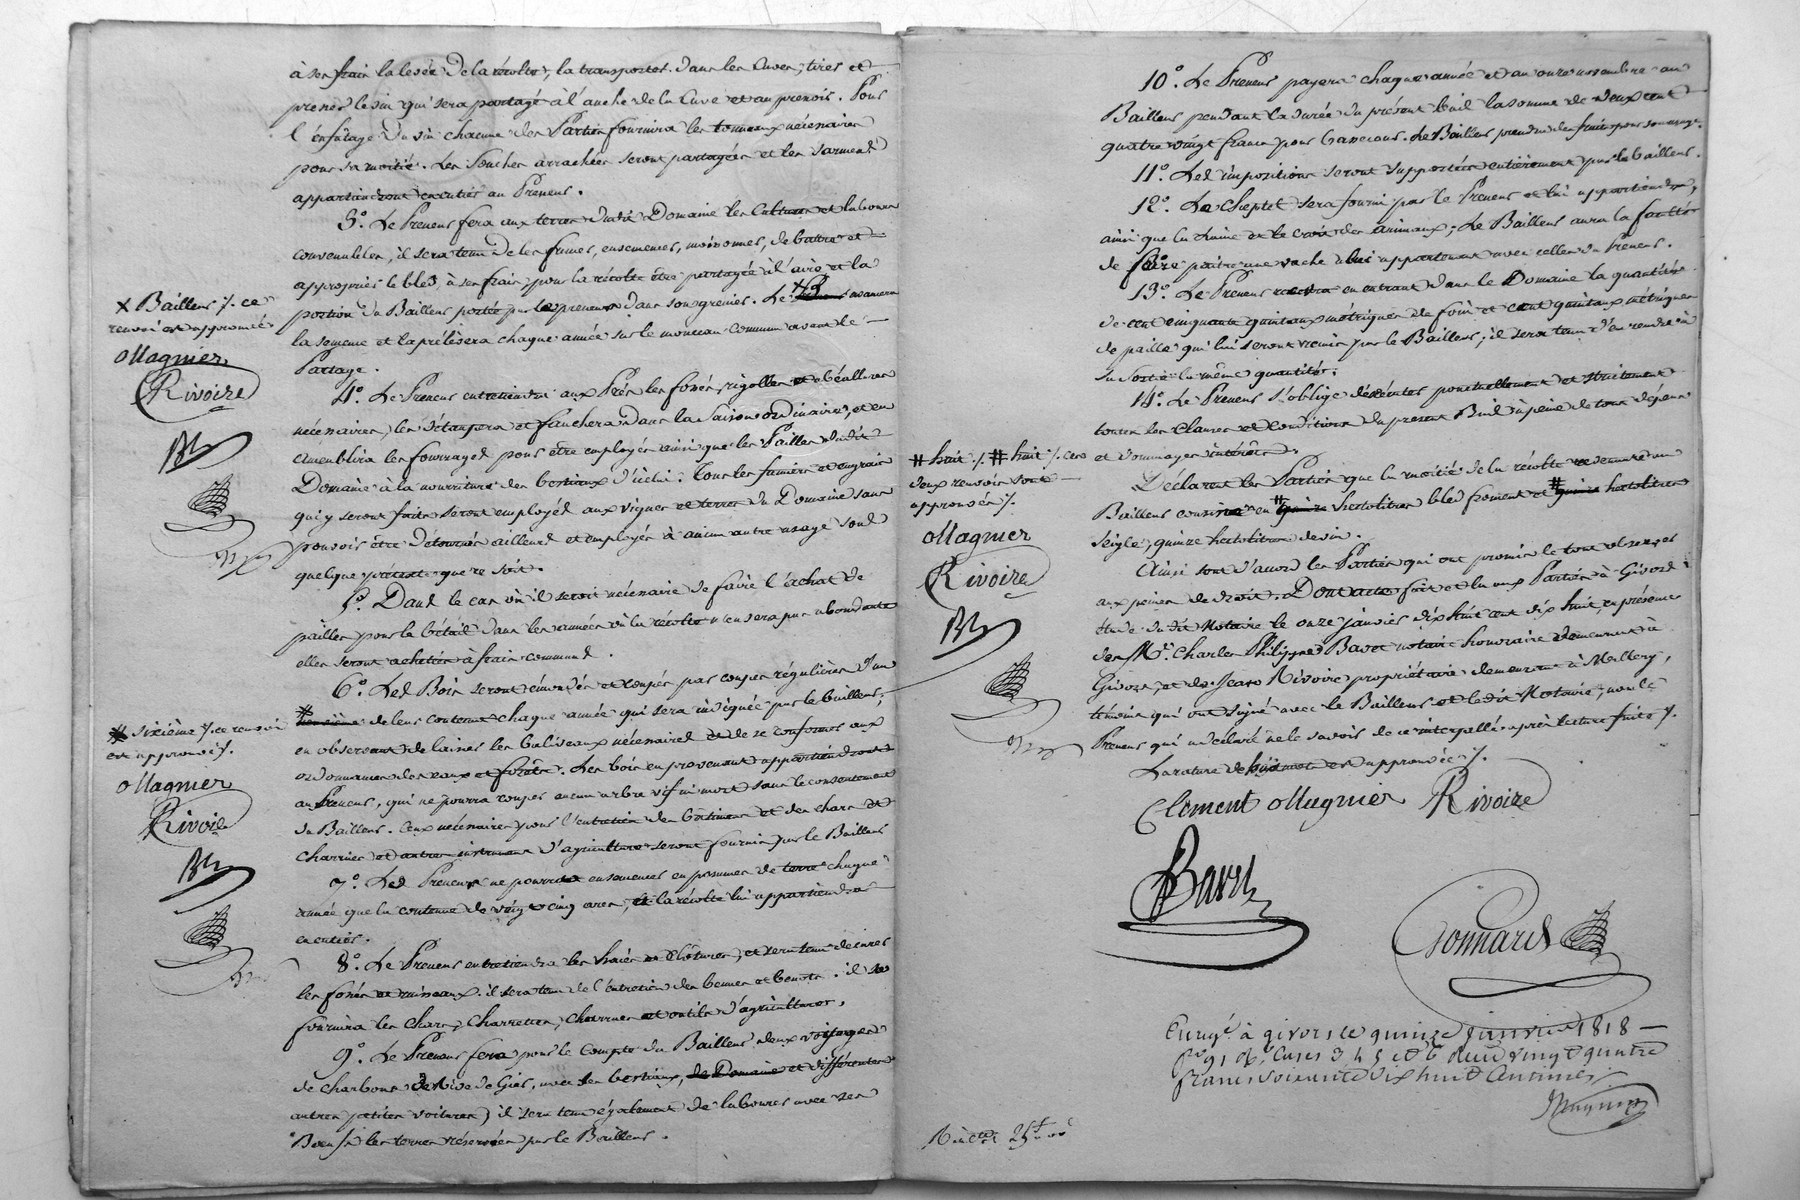 à ses frais la levée de la récolte, la transporter dans les Cuves, tirer et
presser le vin qui sera partagé à l'anche de la Cuve et au pressoir. Pour
l'enfutage du vin chacune des Parties fournira les tonneaux nécessaires
pour sa moitié. Les Souches arrachées seront partagées et les sarments
appartiendront en entier au Preneur.
3.° Le Preneur fera aux terres dudit Domaine les Cultures et labours
convenables, il sera tenu de les fumer, ensemencer, moissonner, de battre et
approprier le bled, à ses frais, pour la récolte être partagée à l'aire, et la
portion du Bailleur portée par le preneur dans son grenier. Le
la semence et la prélèvera chaque année sur le monceau commun avant le
Partage.
X Bailleur /. ce
renvoi est approuvé
Magnier
Rivoire
4.° Le Preneur entretiendra aux Prés les fossés, rigolles et béallières
nécessaires, les étaupera et fauchera dans la Saison ordinaire, et en
ameublira les fourrages pour être employés ainsi que les Pailles dudit
Domaine à la nourriture des bestiaux d'icelui. Tous les fumiers et engrais
qui y seront faits seront employés aux vignes et terres du Domaine sans
pouvoir être détournés ailleurs et employés à aucun autre usage sous
quelque prétexte que ce soit.
5.° Dans le cas où il seroit nécessaire de faire l'achat de
pailles pour le bétail dans les années où la récolte n'en sera pas abondante
elles seront achetées à frais communs.
6.° Les Bois seront émondés et coupés par coupes régulières d'un
# de leur contenue chaque année qui sera indiquée par le bailleur,
en observant de laisser les baliveaux nécessaires et de se conformer aux
ordonnances des eaux et forêts. Les bois en provenant appartiendront
au Preneur, qui ne pourra couper aucun arbre vif ni mort sans le consentement
du Bailleur. Ceux nécessaires pour l'entretien des bâtimens et des chars et
charrues et autres instrumens d'agriculture seront fournis par le Bailleur
# sixième /. ce renvoi
est approuvé /.
Magnier
Rivoire
7.° Les Preneurs ne pourront ensemencer en pommes de terre chaque
année que la contenue de vingt cinq ares, et la récolte lui appartiendra
en entier.
8.° Le Preneur entretiendra les haies et Clôtures, et sera tenu de curer
les fossés et ruisseaux. il sera tenu de l'entretien des bennes et benots. il se
fournira les Chars, Charrettes, Charrues et outils d'agriculture.
9.° Le Preneur fera pour le Compte du Bailleur deux voyages
de charbons de Rive de Gier, avec les bestiaux du Domaine et différentes
autres petites voitures; il sera tenu également de labourer avec ses
Bœufs les terres réservées par le Bailleur.
10.° Le Preneur payera chaque année et au onze novembre au
Bailleur pendant la durée du présent bail la somme de deux cent
quatre vingt francs pour basse cour. Le Bailleur prendra des fruits pour son usage.
11.° Les impositions seront supportées entièrement par le bailleur.
12.° Le Cheptel sera fourni par le Preneur et lui appartiendra,
ainsi que la chaine et le croix des animaux; Le Bailleur aura la faculté
de faire paitre une vache à lui appartenant avec celles du Preneur.
13.° Le Preneur recevra en entrant dans le Domaine la quantité
de cent cinquante quintaux métriques de foin et cent quintaux métriques
de paille qui lui seront remis par le Bailleur; il sera tenu d'en rendre à
sa Sortie la même quantité.
14.° Le Preneur s'oblige d'exécuter ponctuellement et strictement
toutes les clauses et conditions du present Bail à peine de tous dépens
et dommages intérêts.
Déclarent les Parties que la moitié de la récolte revenant au
Bailleur consiste en # hectolitres bled froment et # hectolitres
Seigle, quinze hectolitres de vin.
# huit /. # huit /. ces
deux renvois sont
approuvés /.
Magnier
Rivoire
Ainsi sont d'accord les Parties qui ont promis le tout observer
aux peines de droit. Dont acte fait et lu aux Parties à Givors
étude du dit Notaire le onze janvier dix huit cent dix huit, en présence
des M.rs Charles Philippe Bavet notaire honoraire demeurant à
Givors, et de Jean Rivoire propriétaire demeurant à Millery,
témoins qui ont signé avec le Bailleur et le dit Notaire, non le
Preneur qui a déclaré ne le savoir de ce interpellé après lecture faite /.
La rature de huit mots est approuvée /.
Clement Magnier Rivoire
Bavet
Gonnard
Enreg.é à givors le quinze janvier 1818
f.o 91 r.o Cases 3 4 5 et 6 Reçu vingt quatre
francs soixante dix huit Centimes